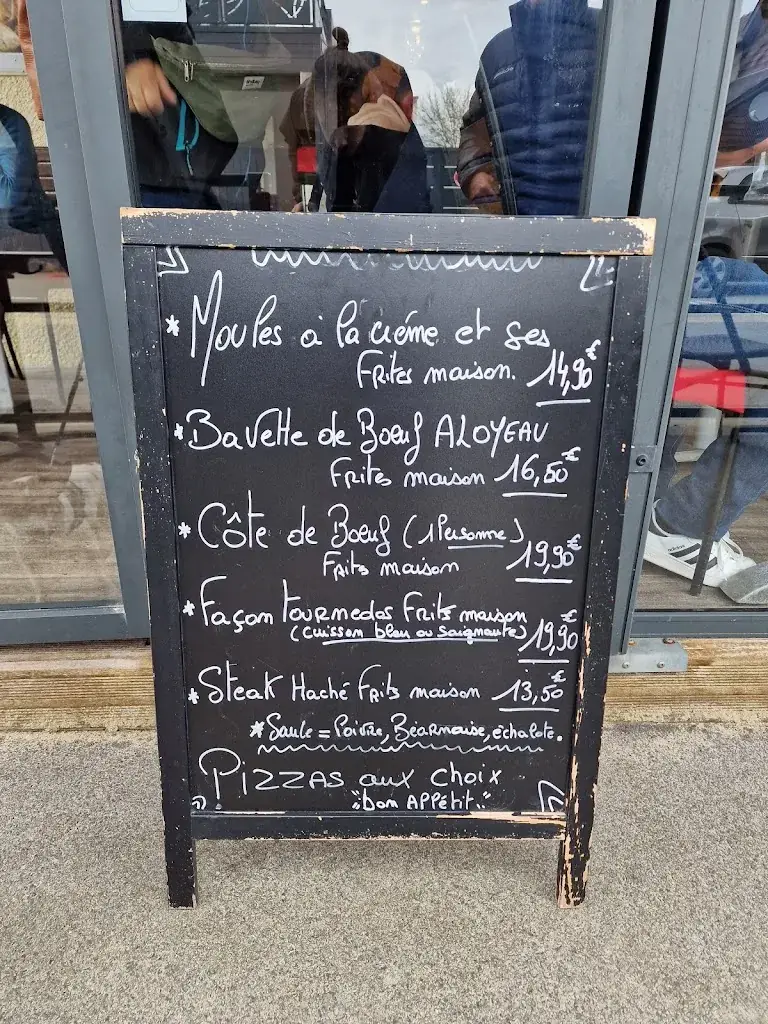 * Moules à la crème et ses
Frites maison. 14,90€
* Bavette de Boeuf ALOYEAU
Frites maison 16,50€
* Côte de Boeuf (1 Personne)
Frits maison 19,90€
* Façon tournedos Frits maison
(cuisson bleu ou saignante) 19,90€
* Steak Haché Frits maison 13,50€
* Saule = Poivre, Béarnaise, échalote.
PIZZAS aux choix
"bon APPétit"